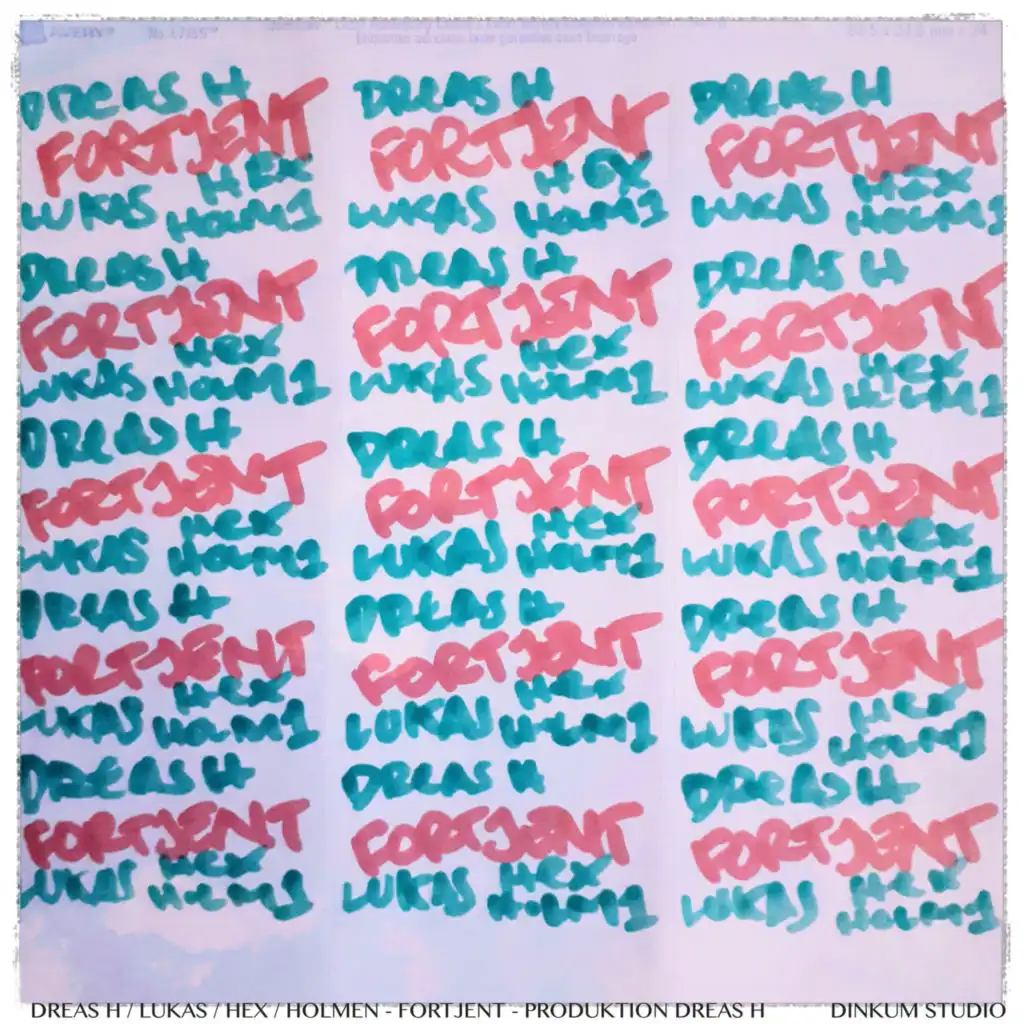 DREAS H
FORTJENT
HEX
LUKAS HOLM1
DREAS H
FORTJENT
HEX
LUKAS HOLM1
DREAS H
FORTJENT
HEX
LUKAS HOLM1
DREAS H
FORTJENT
HEX
LUKAS HOLM1
DREAS H
FORTJENT
HEX
LUKAS HOLM1
DREAS H
FORTJENT
HEX
LUKAS HOLM1
DREAS H
FORTJENT
HEX
LUKAS HOLM1
DREAS H
FORTJENT
HEX
LUKAS HOLM1
DREAS H
FORTJENT
HEX
LUKAS HOLM1
DREAS H
FORTJENT
HEX
LUKAS HOLM1
DREAS H
FORTJENT
HEX
LUKAS HOLM1
DREAS H
FORTJENT
HEX
LUKAS HOLM1
DREAS H
FORTJENT
HEX
LUKAS HOLM1
DREAS H
FORTJENT
HEX
LUKAS HOLM1
DREAS H
FORTJENT
HEX
LUKAS HOLM1
DREAS H / LUKAS / HEX / HOLMEN - FORTJENT - PRODUKTION DREAS H DINKUM STUDIO